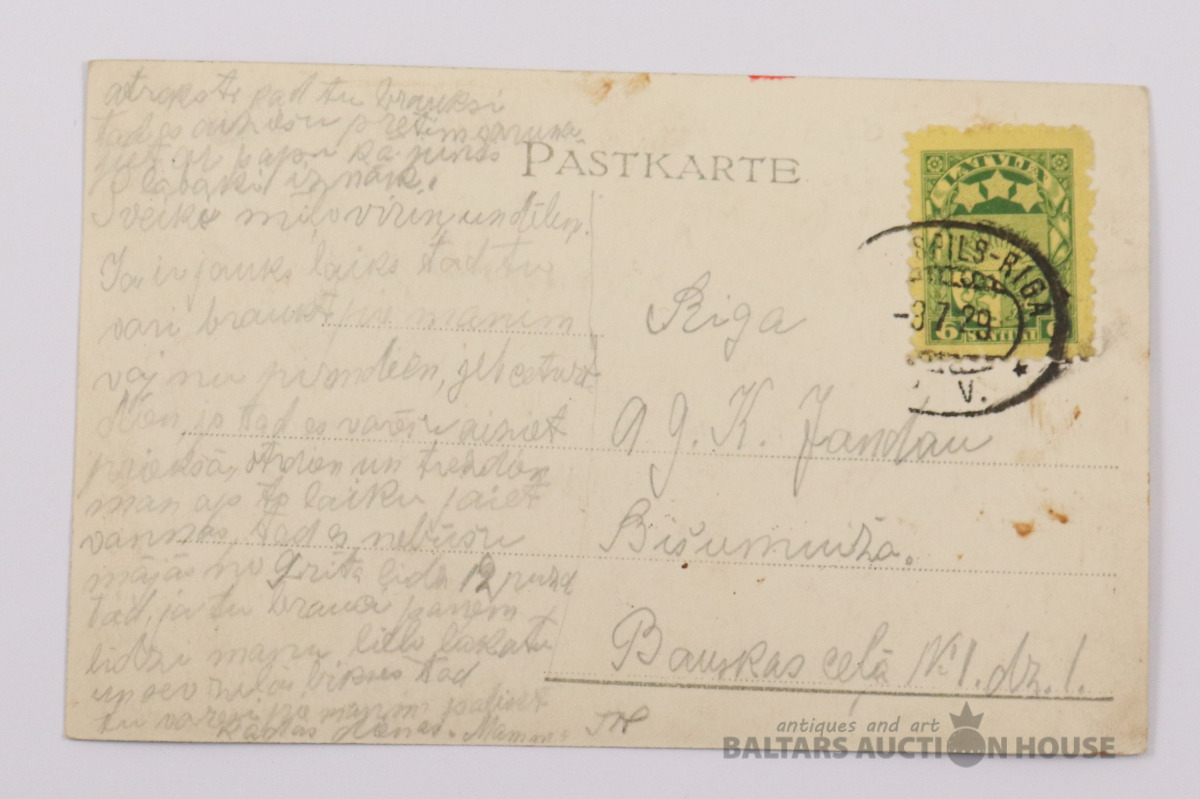 atrakst kad tu brauksi
tad es
Sveiks mīļo vīriņ un dēliņ.
Ja ir jauks laiks tad tu
vari braukt uz manim
vaj nu pirmdien, jeb ceturt
dien, jo tad es varēšu aiziet
priekšā, otrdien un trešdien
man ap to laiku jaiet
vannās, tad es nebūšu
mājās no 9 rīta līdz 12 pusd
tad, ja tu brauc paņem
līdzi manu lielo lakatu
un sev bikses tad
tu varēsi pie manim palikt
kādas dienas. Mamma
PASTKARTE
LATVIJA
6 SANTIMI 6
SPILS-RIGA
-3 7 29
V.
Riga
A g. K. Jandau
Bišumuiža.
Bauskas ceļā № 1. dz. 1.
antiques and art
BALTARS AUCTION HOUSE